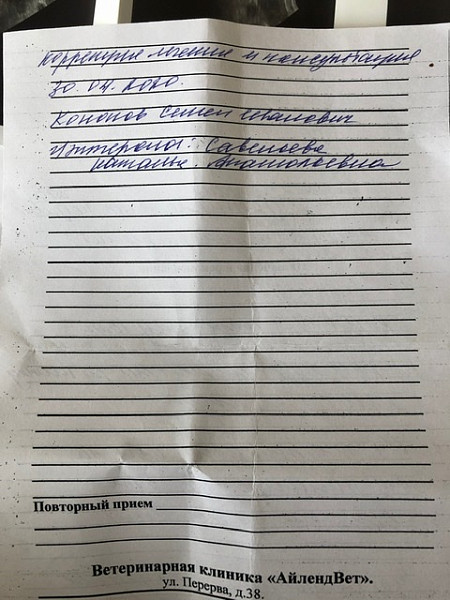 Коррекция лечения и консультация
30.04.2020.
Кононов Семен Иванович
Савельева
Наталья Анатольевна
Повторный прием
Ветеринарная клиника «АйлендВет».
ул. Перерва, д.38.